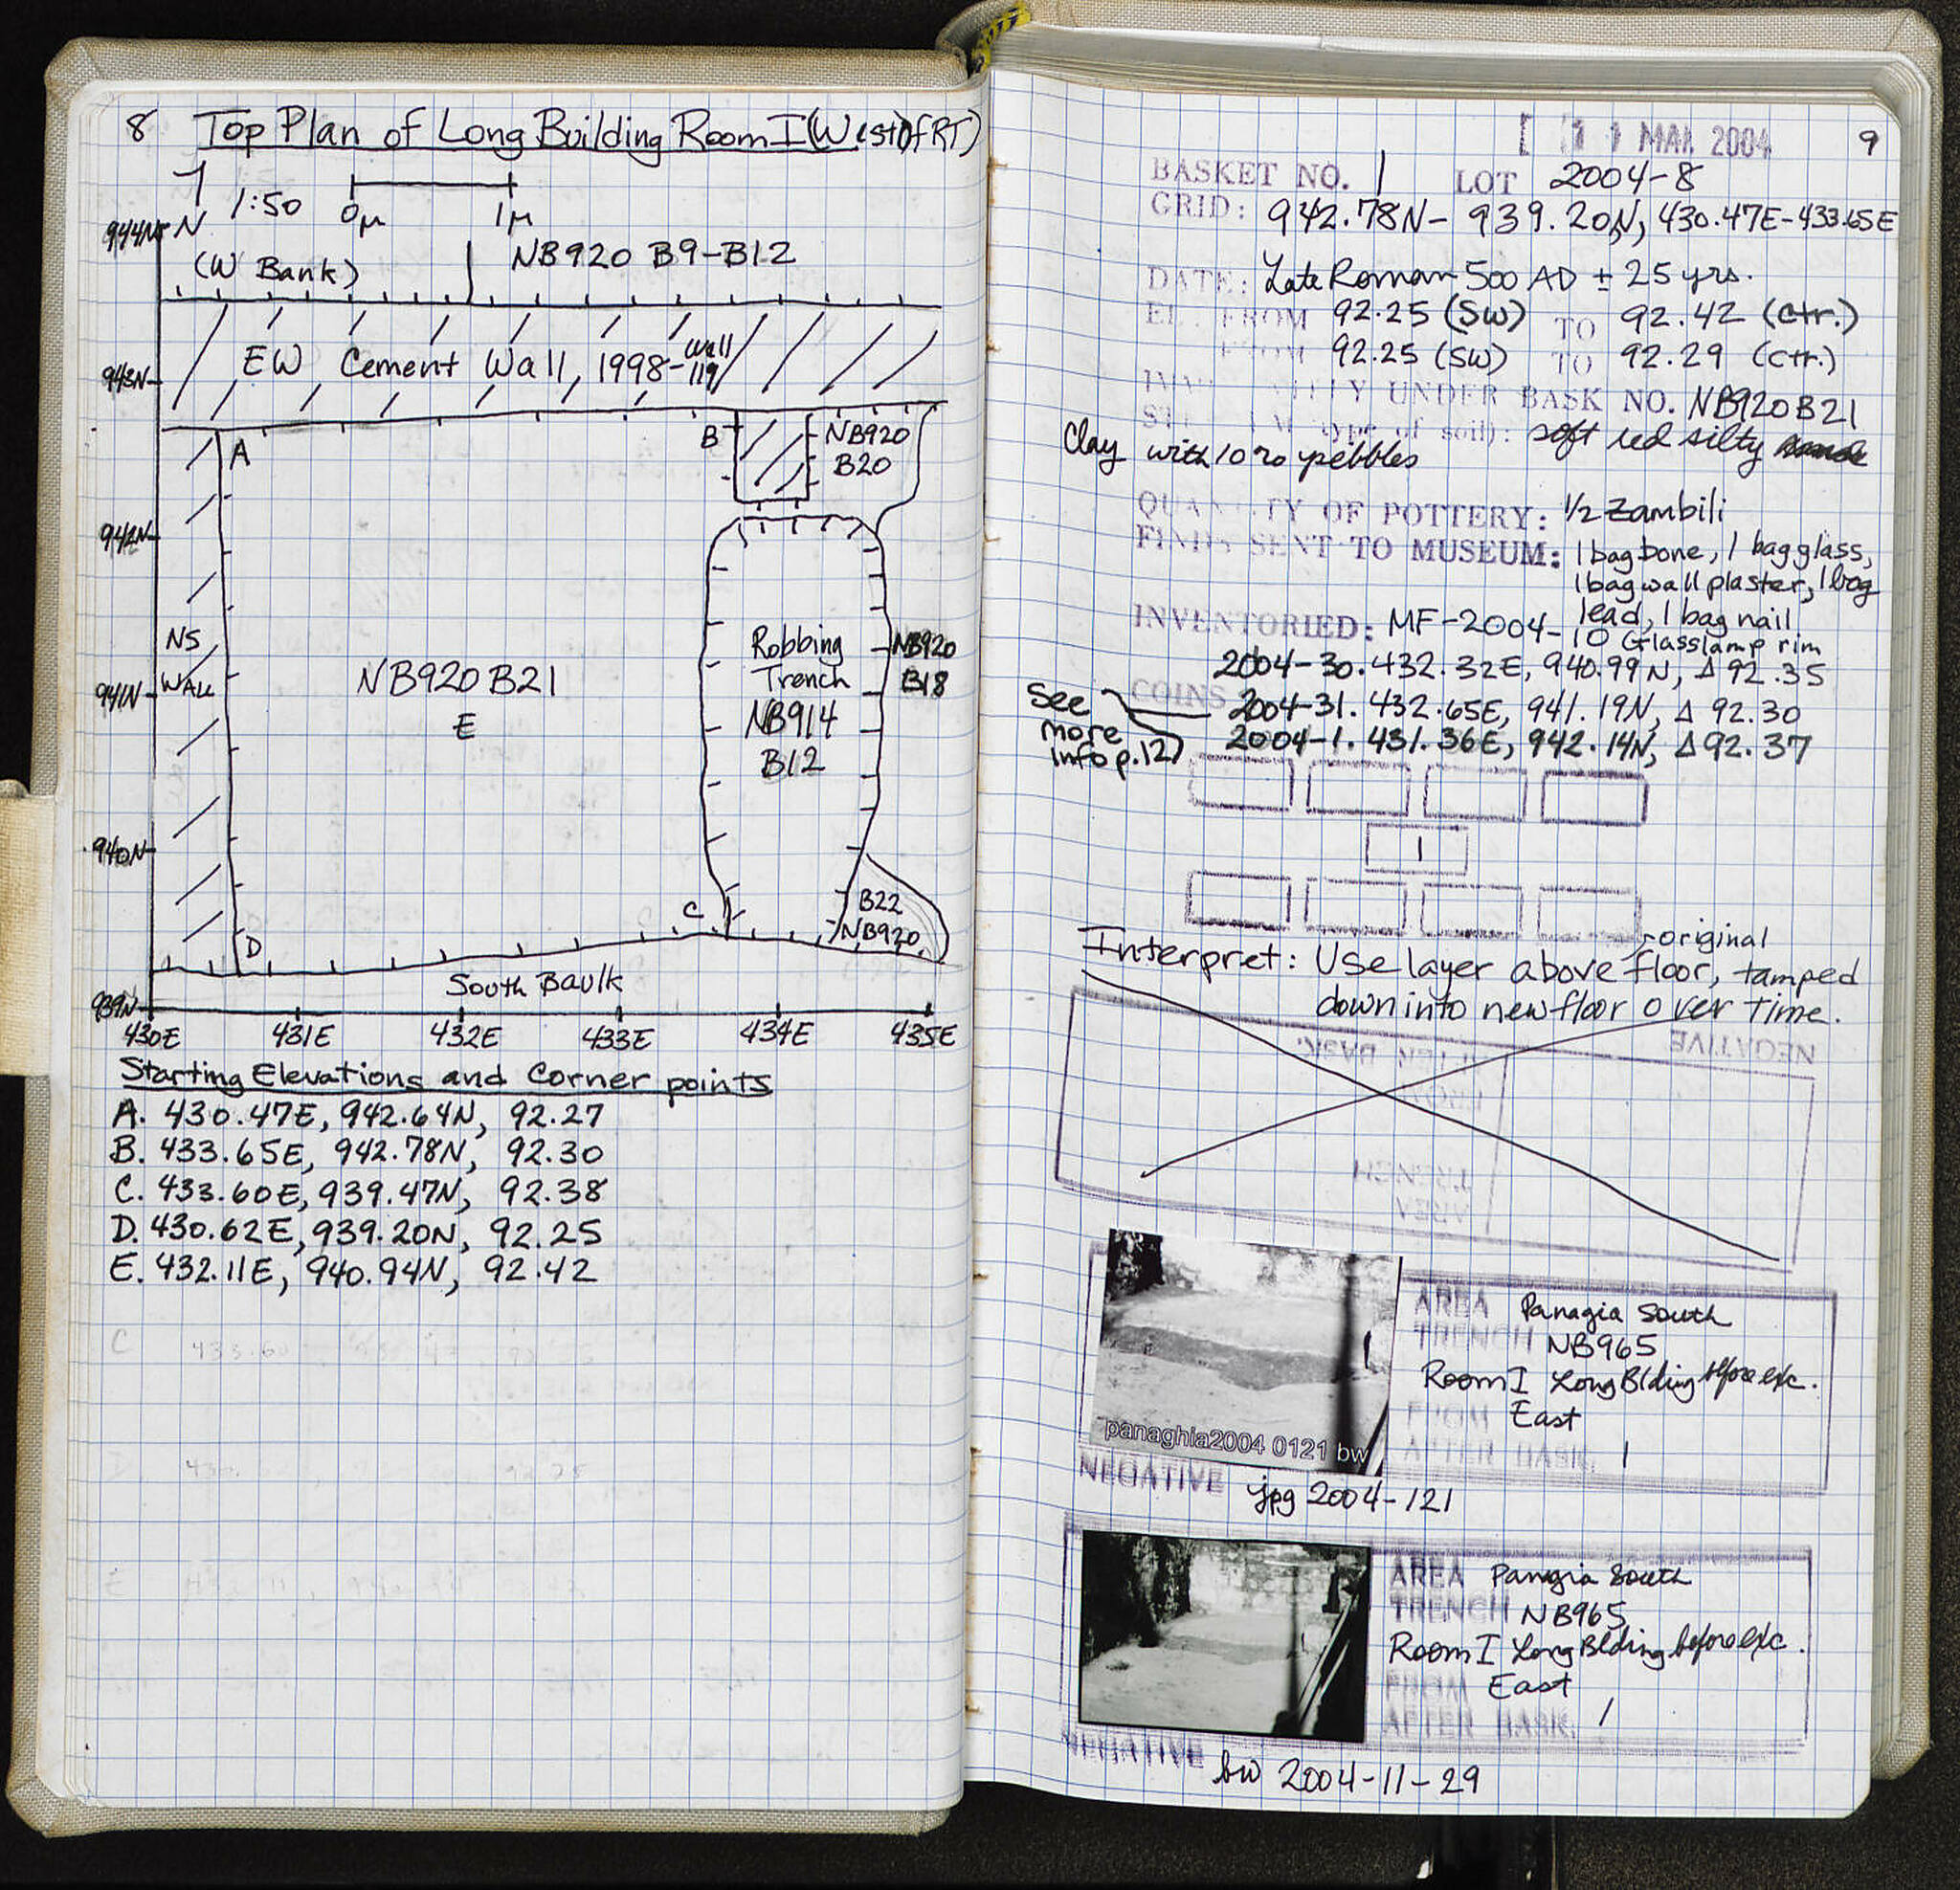 8 Top Plan of Long Building Room I (West of RT)
N 1:50 0M 1M
944N
(W Bank) NB920 B9-B12
EW Cement Wall, 1998-Wall 119
943N
A
B
NB920
B20
942N
NS
WALL
941N
NB920 B21
E
Robbing
Trench
NB914
B12
NB920
B18
940N
C
B22
NB920
D
South Baulk
939N
430E 431E 432E 433E 434E 435E
Starting Elevations and Corner points
A. 430.47E, 942.64N, 92.27
B. 433.65E, 942.78N, 92.30
C. 433.60E, 939.47N, 92.38
D. 430.62E, 939.20N, 92.25
E. 432.11E, 940.94N, 92.42
MAI 2004 9
BASKET NO. 1 LOT 2004-8
GRID: 942.78N- 939.20N, 430.47E-433.65E
DATE: Late Roman 500 AD ± 25 yrs.
EL. FROM 92.25 (SW) TO 92.42 (Ctr.)
FROM 92.25 (SW) TO 92.29 (Ctr.)
UNDER BASK NO. NB920B21
(type of soil): soft red silty
Clay with 10% pebbles
QUANTITY OF POTTERY: 1/2 Zambili
FINDS SENT TO MUSEUM: 1 bag bone, 1 bag glass,
1 bag wall plaster, 1 bag
lead, 1 bag nail
INVENTORIED: MF-2004-10 Glass lamp rim
2004-30. 432.32E, 940.99N, Δ 92.35
COINS 2004-31. 432.65E, 941.19N, Δ 92.30
2004-1. 431.36E, 942.14N, Δ 92.37
See
more
info p.12
1
original
Interpret: Use layer above floor, tamped
down into new floor over time.
NEGATIVE
AFTER BASK.
FROM
TRENCH
AREA
AREA Panagia South
TRENCH NB965
Room I Long Blding before exc.
FROM East
AFTER BASK. 1
panaghia2004 0121 bw
NEGATIVE jpg 2004-121
AREA Panagia South
TRENCH NB965
Room I Long Blding before exc.
FROM East
AFTER BASK. 1
NEGATIVE bw 2004-11-29